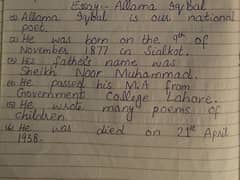 Essay:- Allama Iqbal
(1) Allama Iqbal is our national
poet.
(2) He was born on the 9th of
November 1877 in Sialkot.
(3) His father's name was
Sheikh Noor Muhammad.
(4) He passed his M.A from
Government College Lahore.
(5) He wrote many poems of
children.
(6) He was died on 21st April
1938.